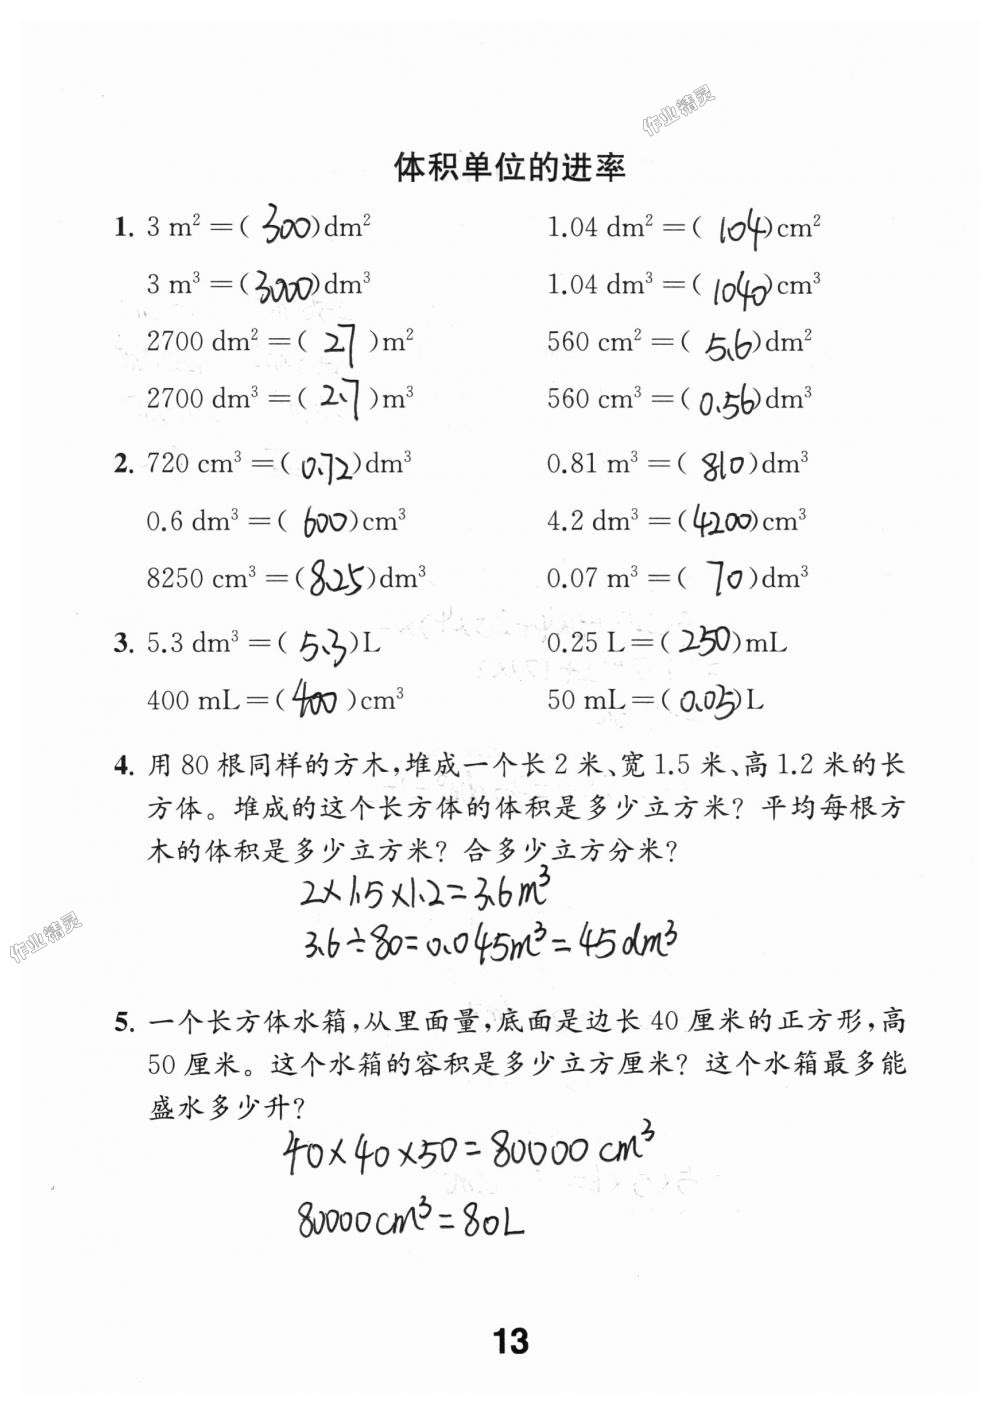 作业精灵
体积单位的进率
1. 3 m²=( 300 )dm² 1.04 dm²=( 104 )cm²
3 m³=( 3000 )dm³ 1.04 dm³=( 1040 )cm³
2700 dm²=( 27 )m² 560 cm²=( 5.6 )dm²
2700 dm³=( 2.7 )m³ 560 cm³=( 0.56 )dm³
2. 720 cm³=( 0.72 )dm³ 0.81 m³=( 810 )dm³
0.6 dm³=( 600 )cm³ 4.2 dm³=( 4200 )cm³
8250 cm³=( 8.25 )dm³ 0.07 m³=( 70 )dm³
3. 5.3 dm³=( 5.3 )L 0.25 L=( 250 )mL
400 mL=( 400 )cm³ 50 mL=( 0.05 )L
4. 用 80 根同样的方木，堆成一个长 2 米、宽 1.5 米、高 1.2 米的长
方体。堆成的这个长方体的体积是多少立方米？平均每根方
木的体积是多少立方米？合多少立方分米？
2×1.5×1.2=3.6m³
3.6÷80=0.045m³=45dm³
作业精灵
5. 一个长方体水箱，从里面量，底面是边长 40 厘米的正方形，高
50 厘米。这个水箱的容积是多少立方厘米？这个水箱最多能
盛水多少升？
40×40×50=80000cm³
80000cm³=80L
13